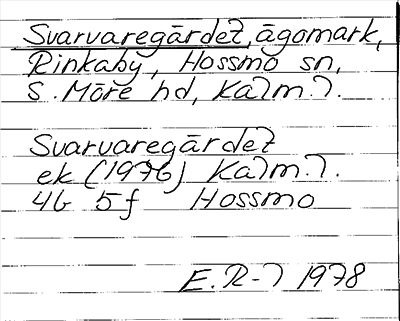 Svarvaregärdet, ägomark,
Rinkaby, Hossmo sn,
S. Möre hd, Kalm. l.
Svarvaregärdet
ek (1976) Kalm. l.
4G 5f Hossmo
E. R-l 1978